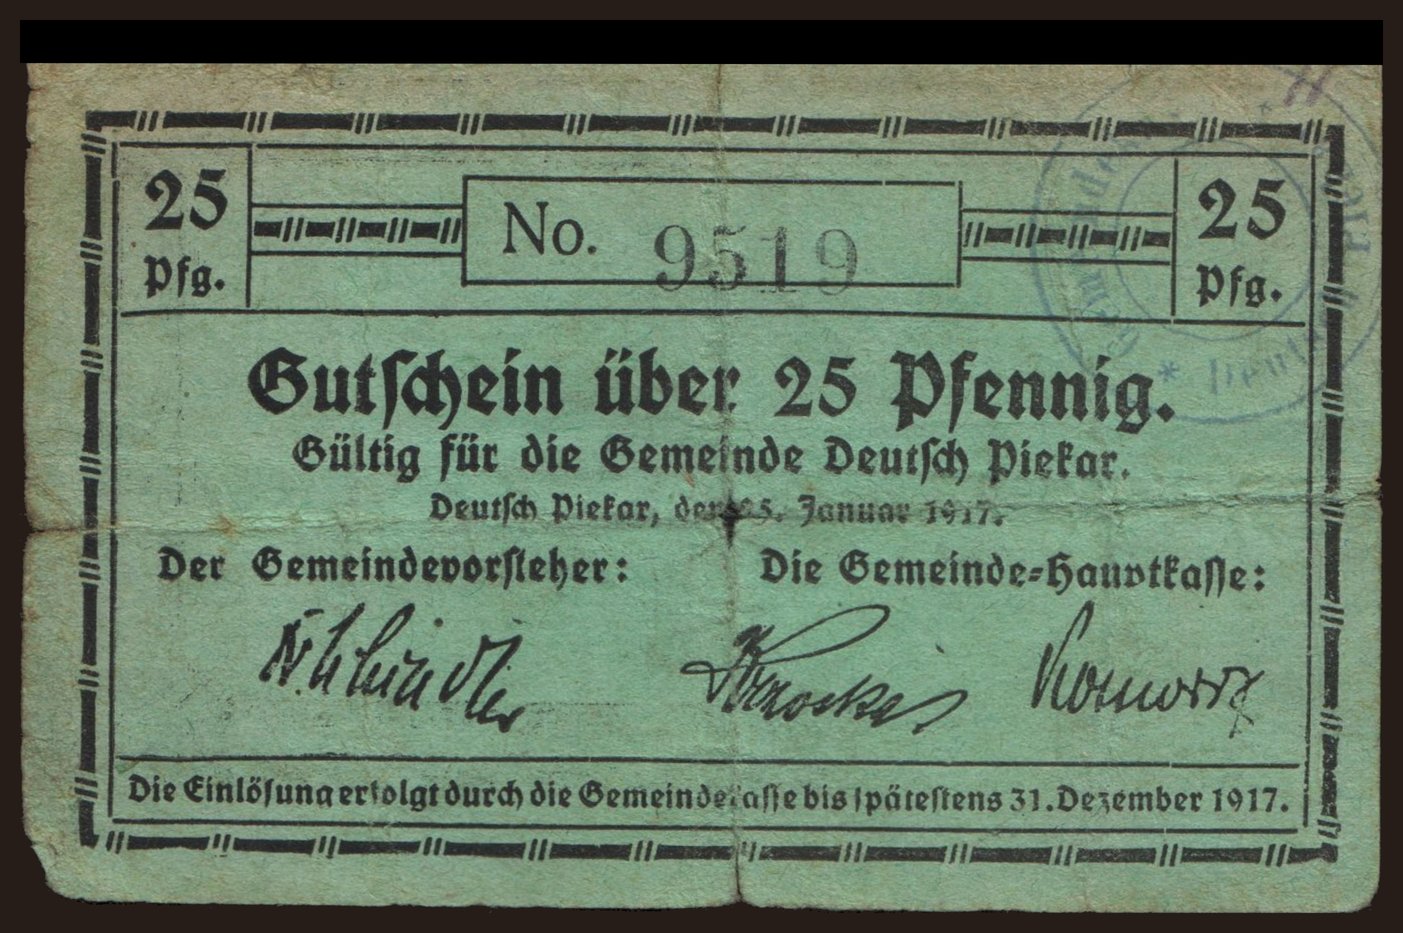 25 Pfg.
No. 9519
25 Pfg.
Gutschein über 25 Pfennig.
Gültig für die Gemeinde Deutsch Piekar.
Deutsch Piekar, den 25. Januar 1917.
Der Gemeindevorsteher:
Die Gemeinde-Hauptkasse:
Die Einlösung erfolgt durch die Gemeindekasse bis spätestens 31. Dezember 1917.